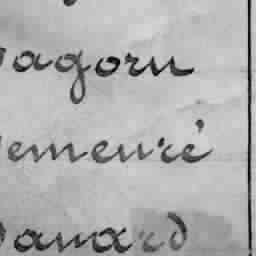 agorn
emeuré
amard